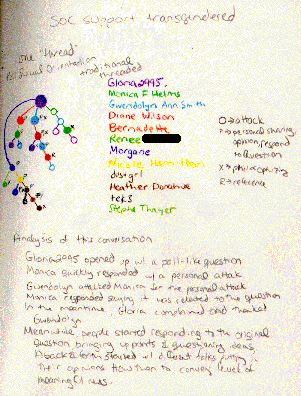 Soc support transgendered
The "thread"
Bisexual Orientation
traditional
threaded
Gloria2995
Monica F Helms
Gwendolyn Ann Smith
Diane Wilson
Bernadette
Renee
Morgane
Nicole
dustgrl
Heather
tek3
Stephe Thayer
O → attack
P → personal sharing
opinion, respond
to question
X → philosophizing
R → reference
Analysis of this conversation
Gloria2995 opened up w/ a poll-like question
Monica quickly responded w/ a personal attack
Gwendolyn attacked Monica for the personal attack
Monica responded saying it was related to the question
In the meantime, Gloria complained and thanked
Gwendolyn
Meanwhile people started responding to the original
question bringing up points & questioning ideas
A back & forth started w/ different folks putting in
their opinions
meaningfulness.